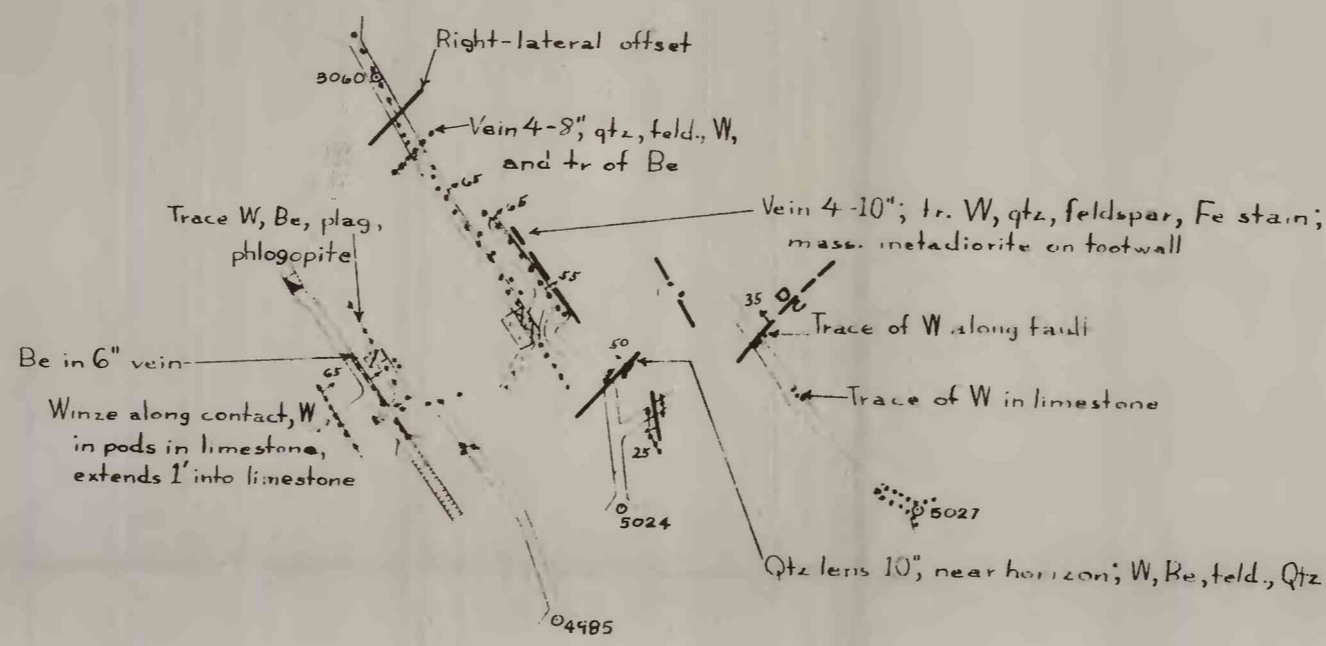 Right-lateral offset
3060
Vein 4-8", qtz, feld., W,
and tr of Be
65
65
Vein 4-10"; tr. W, qtz, feldspar, Fe stain;
mass. metadiorite on footwall
Trace W, Be, plag,
phlogopite
55
35
Trace of W along fault
50
Be in 6" vein
65
Trace of W in limestone
Winze along contact, W
in pods in limestone,
extends 1' into limestone
25
5024
5027
Qtz lens 10", near horizon; W, Be, feld., Qtz
4985